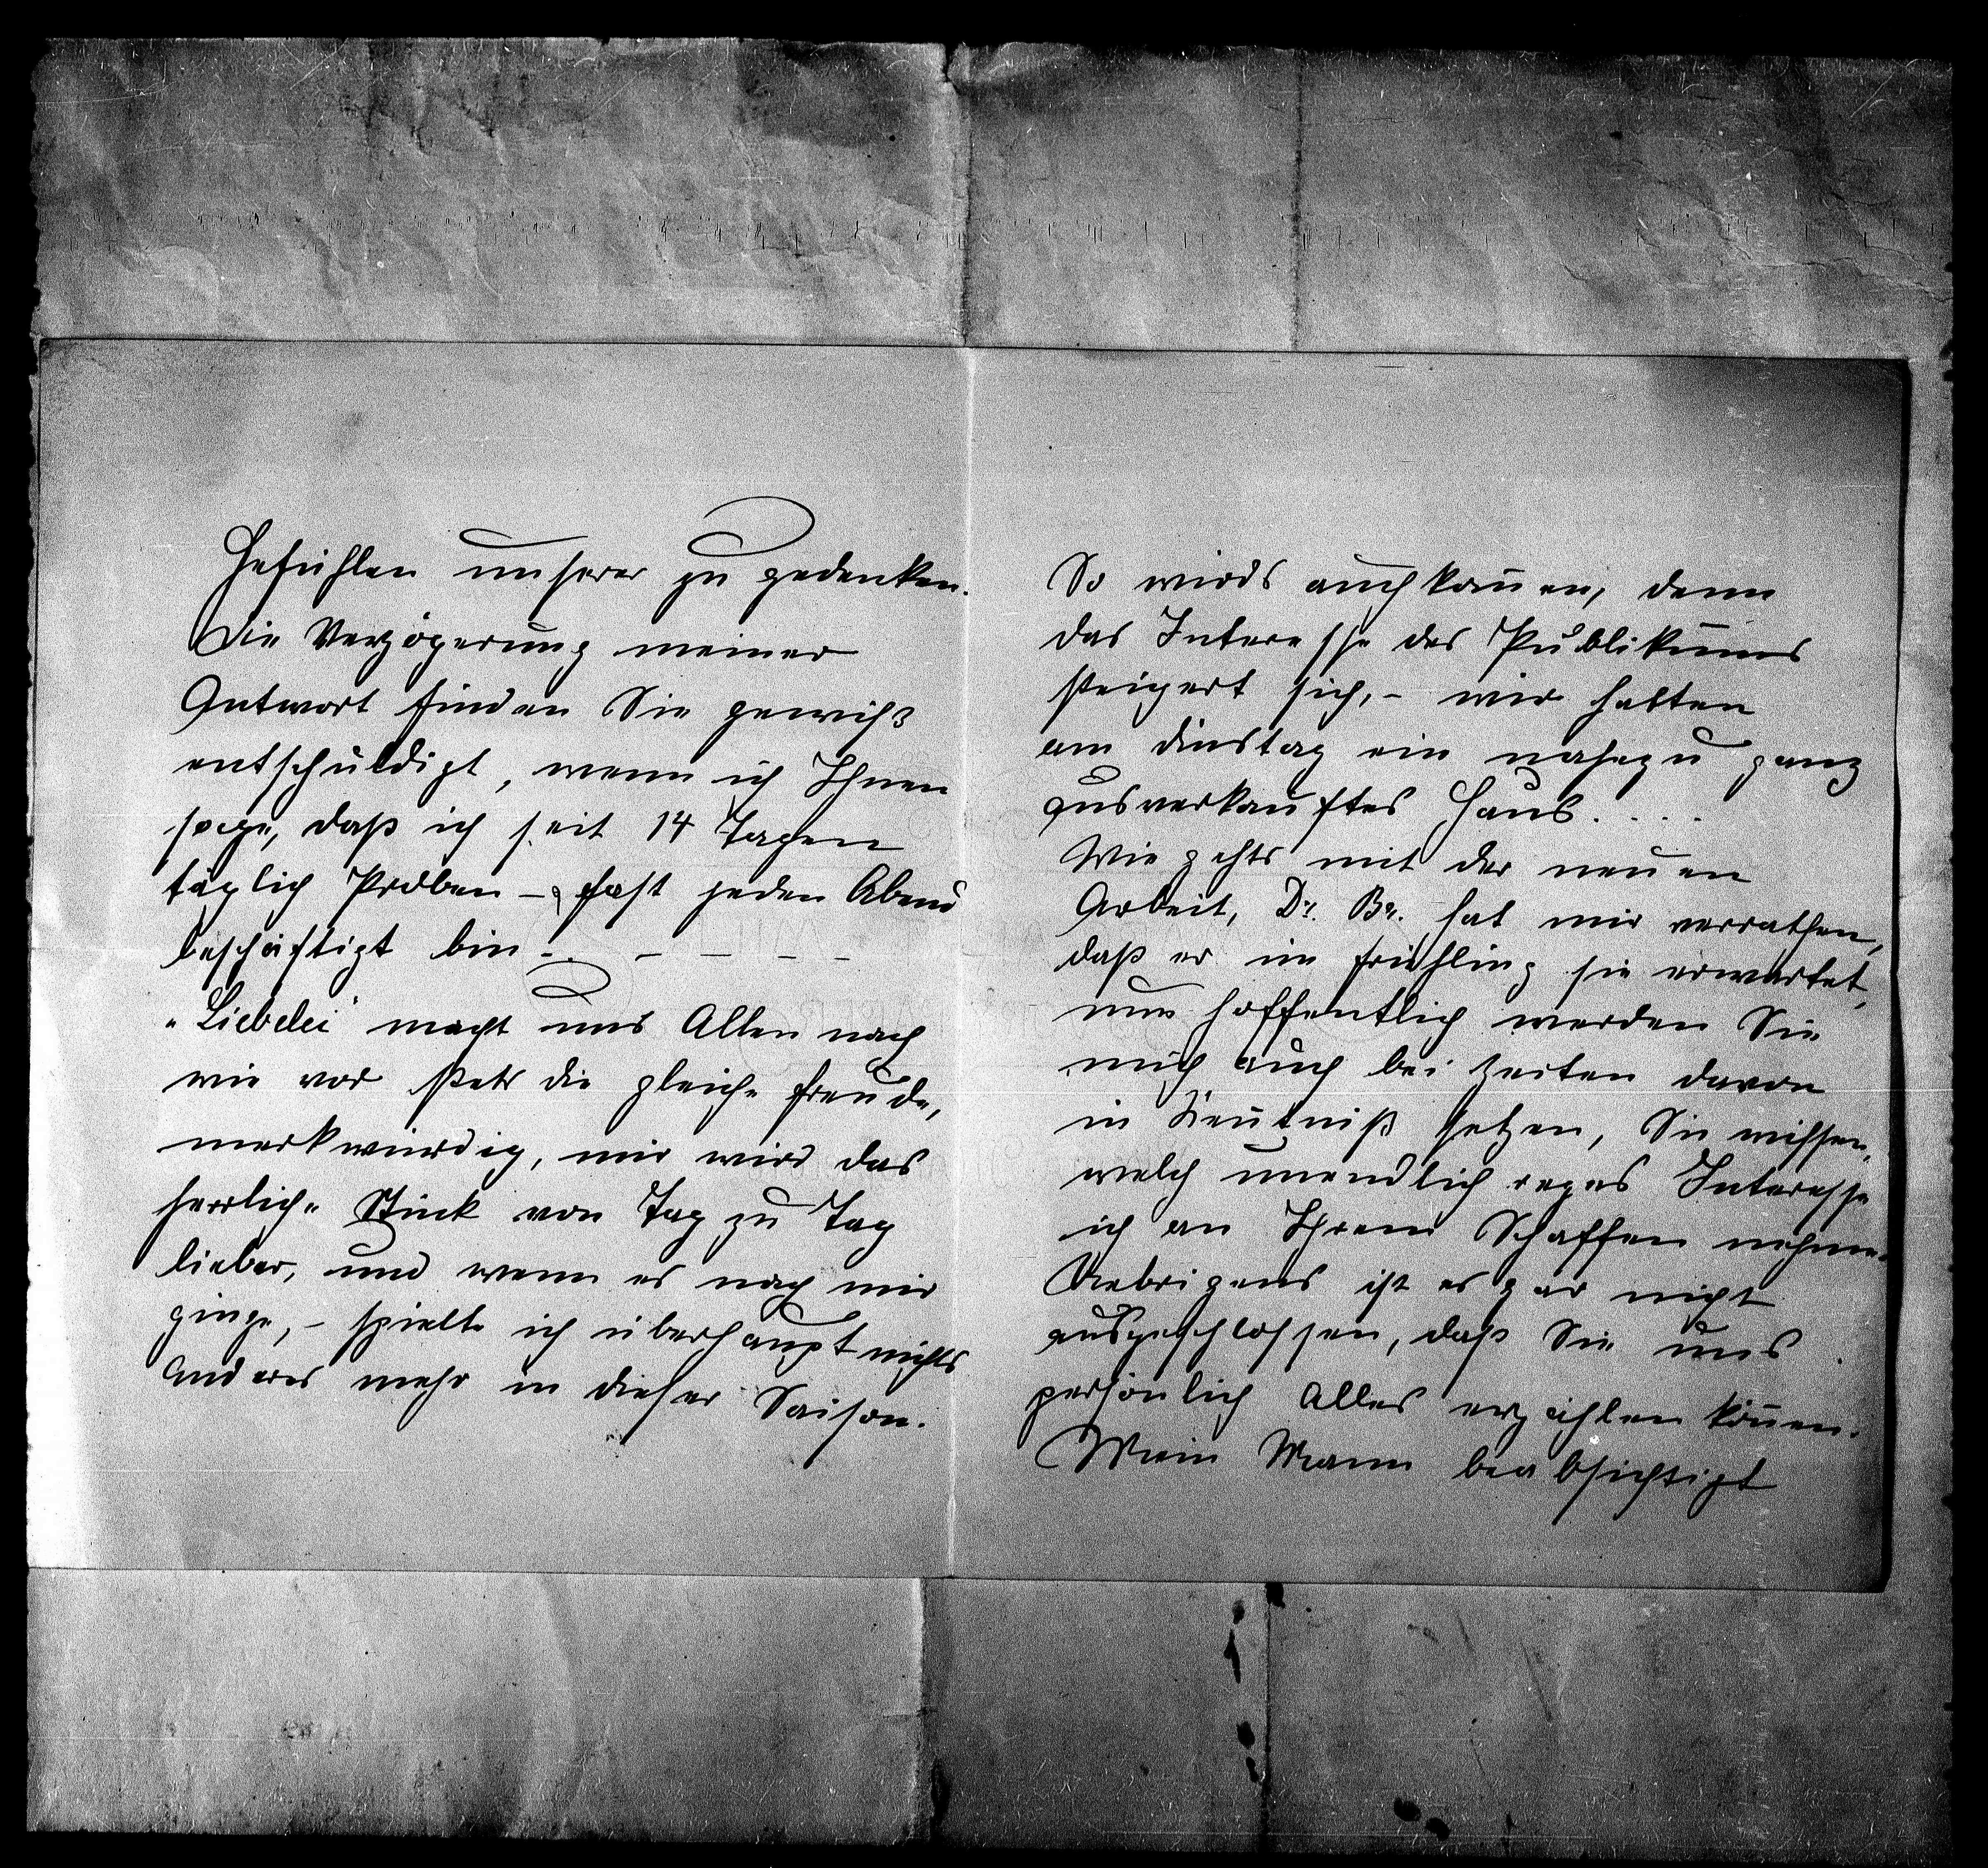 Gefühlen unserer zu gedenken.
Die Verzögerung meiner
Antwort finden Sie gewiß
entschuldigt, wenn ich Ihnen
sage, daß ich seit 14 Tagen
täglich Proben – & fast jeden Abend
beschäftigt bin – . – – – – –
„Liebelei" macht uns Allen nach
wie vor stets die gleiche Freude,
merkwürdig, mir wird das
herrliche Stück von Tag zu Tag
lieber, und wenn es nach mir
ginge, – spielte ich überhaupt nichts
Anderes mehr in dieser Saison.
So wirds auch kom̄en, denn
das Interesse des Publikums
steigert sich, – wir hatten
am Dinstag ein nahezu ganz
ausverkauftes Haus. . . .
Wie gehts mit der neuen
Arbeit, Dr. Br. hat mir verrathen,
daß er im Frühling sie erwartet,
nun hoffentlich werden Sie
mich auch bei Zeiten davon
in Ken̄tniß setzen, Sie wissen,
welch unendlich reges Interesse
ich an Ihrem Schaffen nehme.
Uebrigens ist es gar nicht
ausgeschlossen, daß Sie uns
persönlich Alles erzählen kön̄en.
Mein Mann beabsichtigt